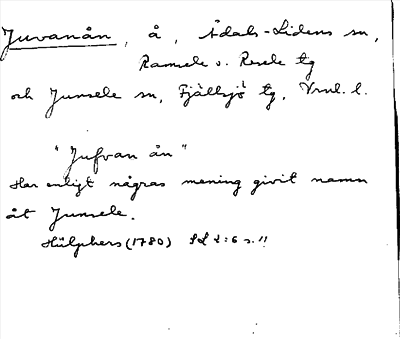 Juvanån, å, Ådals-Lidens sn,
Ramsele o. Resele tg
och Junsele sn, Fjällsjö tg, Vnl. l.
"Jufvan ån"
Har enligt någras mening givit namn
åt Junsele.
Hülphers (1780) s. 11